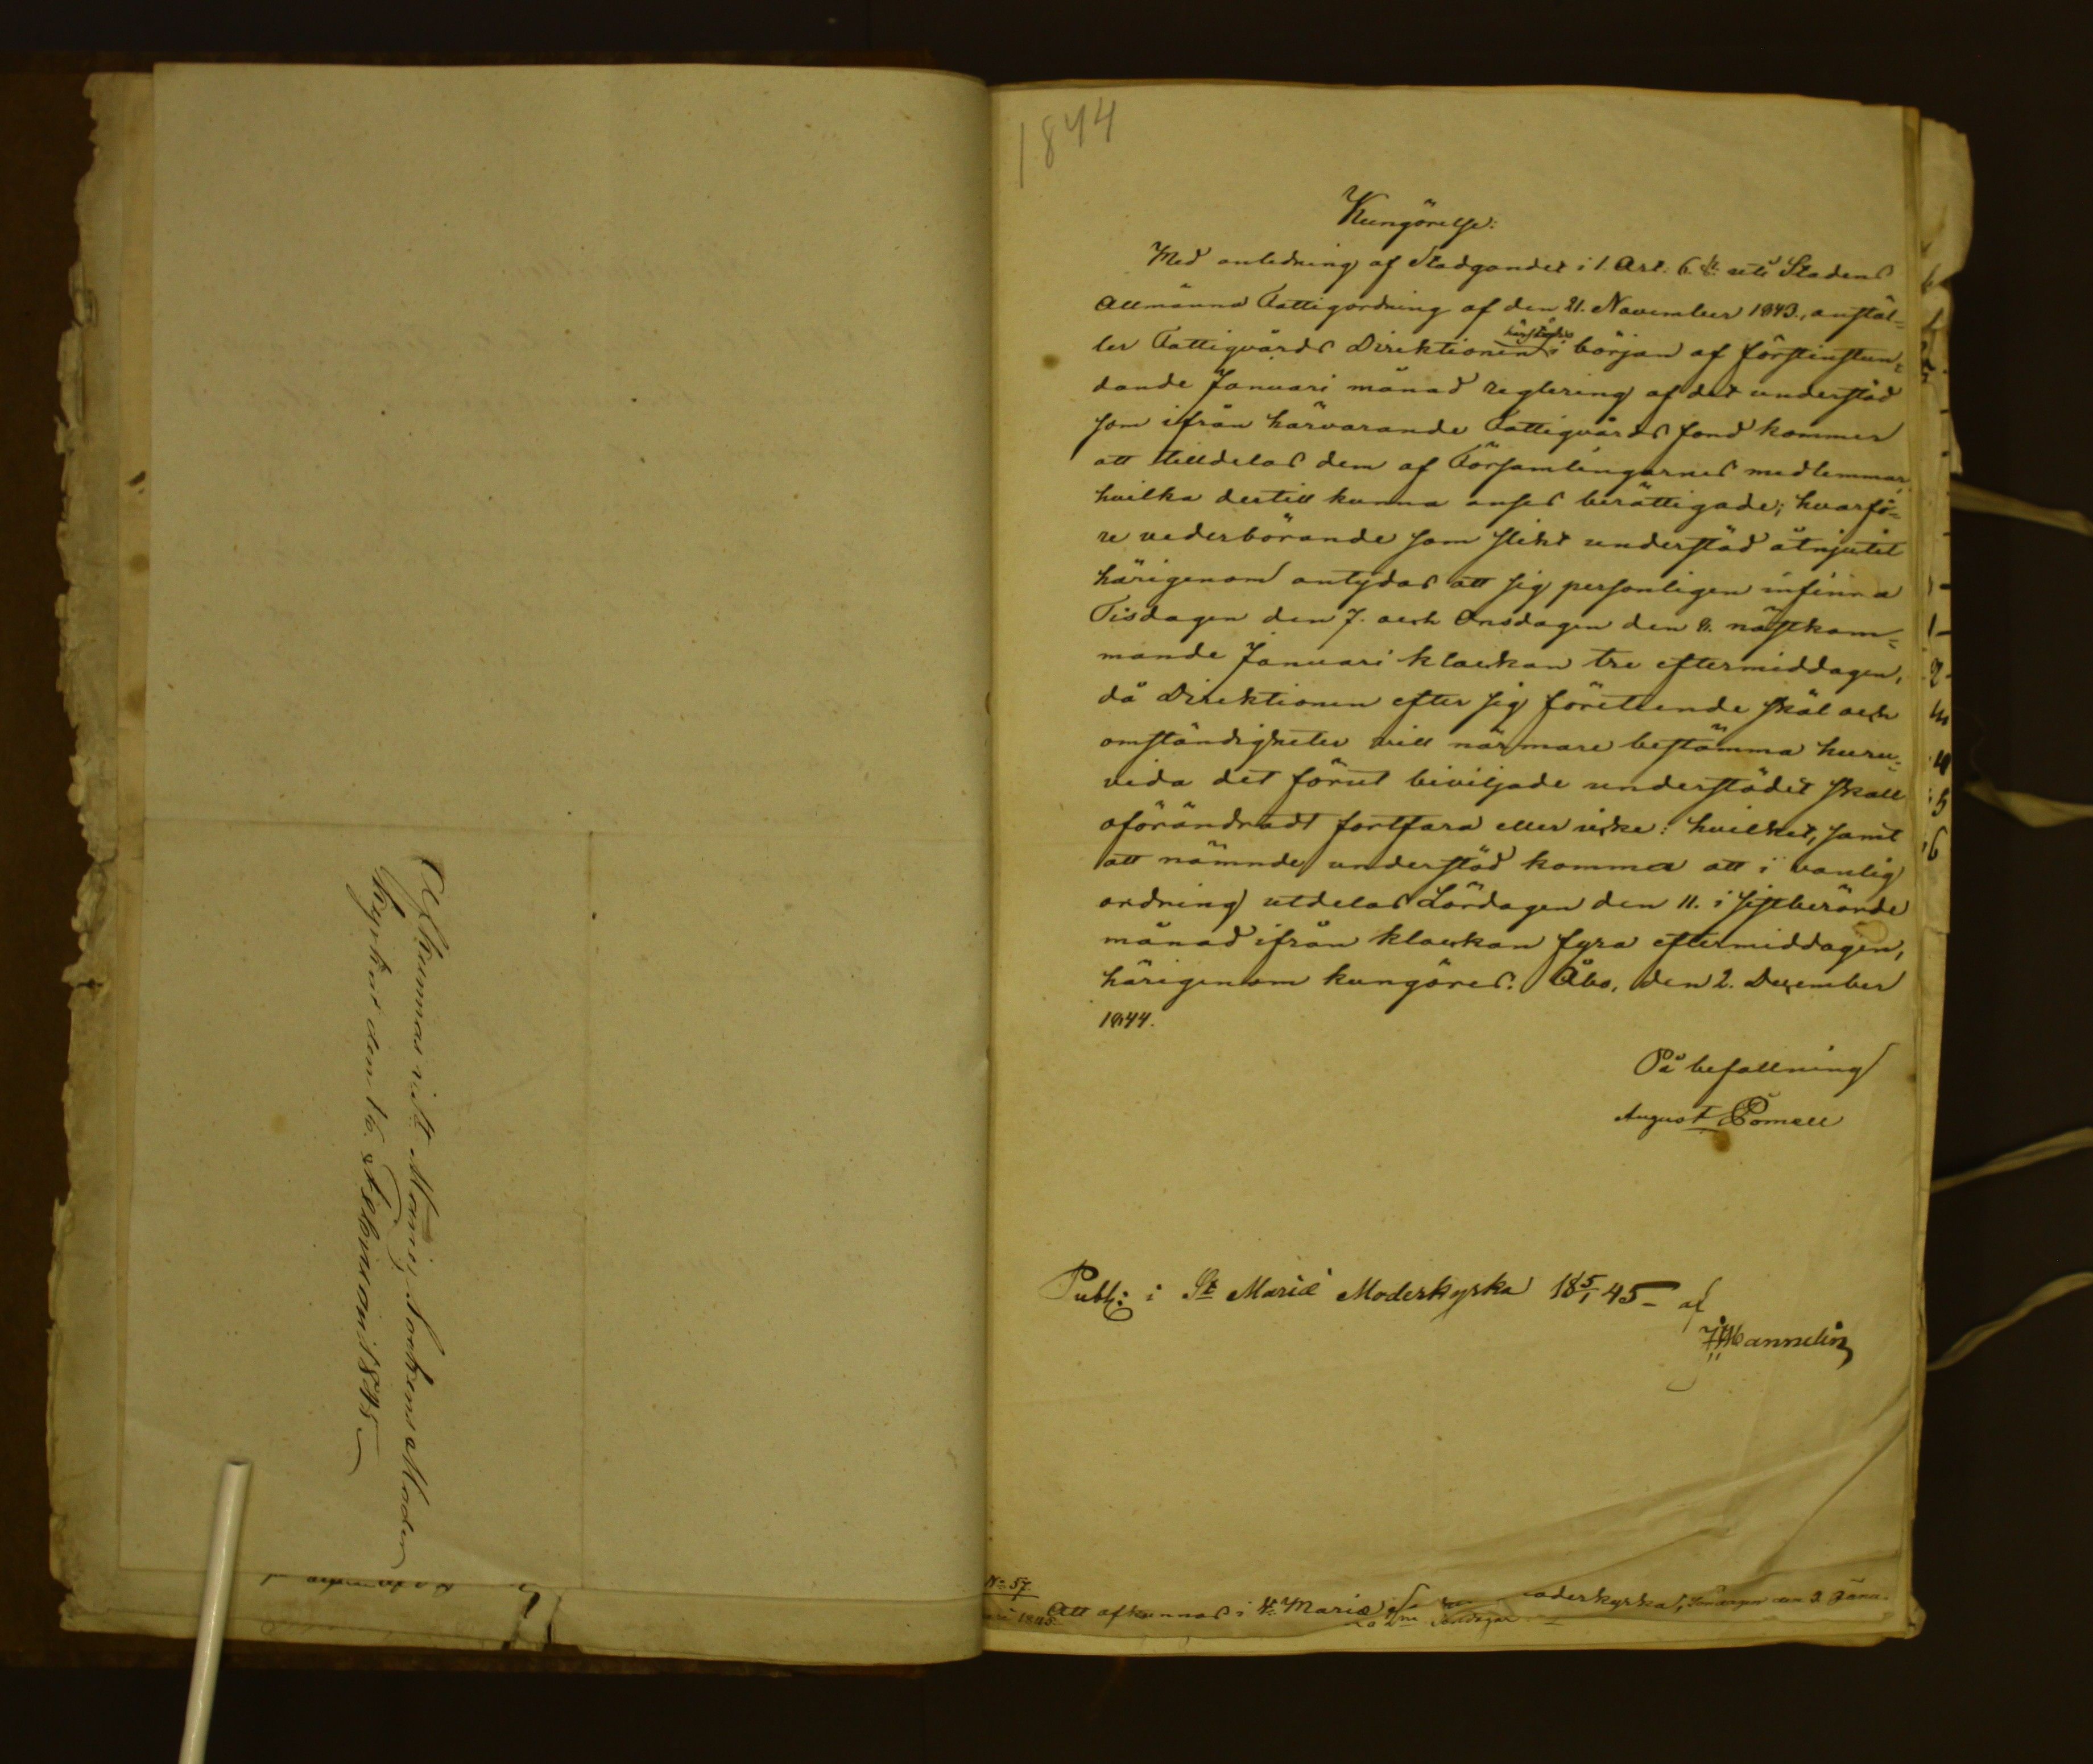 Afkunnas i S:t Mariæ Sockens Moder
kyrka den 16. Februari 1845
1844
Kungörelse:
Med anledning af Stadgandet i 1. Art. 6. §: uti Stadens
Allmänna Fattigordning af den 21. November 1843., anstäl=
ler Fattigvårds Direktionen härstädes i början af förstinstun=
dande Januari månad reglering af det understöd
som ifrån härvarande Fattigvårds fond kommer
att tilldelas dem af Församlingarnes medlemmar,
hvilka dertill kunna anses berättigade; hvarfö=
re vederbörande som slikt understöd åtnjutit
härigenom antydas att sig personligen infinna
Tisdagen den 7. och Onsdagen den 8. nästkom=
mande Januari klockan tre eftermiddagen,
då Direktionen efter sig företeende skäl och
omständigheter vill närmare bestämma huru=
vida det förut beviljade understödet skall
oförändradt fortfara eller icke: hvilket, samt
att nämnde understöd kommer att i vanlig
ordning utdelas Lördagen den 11. i sistberörde
månad ifrån klockan fyra eftermiddagen,
härigenom kungöres. Åbo, den 2. December
1844.
På befallning
August Pomell
Publ: i S:t Mariæ Moderkyrka 18 5/1 45 af
Mannelin
N:o 57.
Att afkunnas i S:t Mariæ oderkyrka, Söndagen den 3 Janu-
ari 1845.